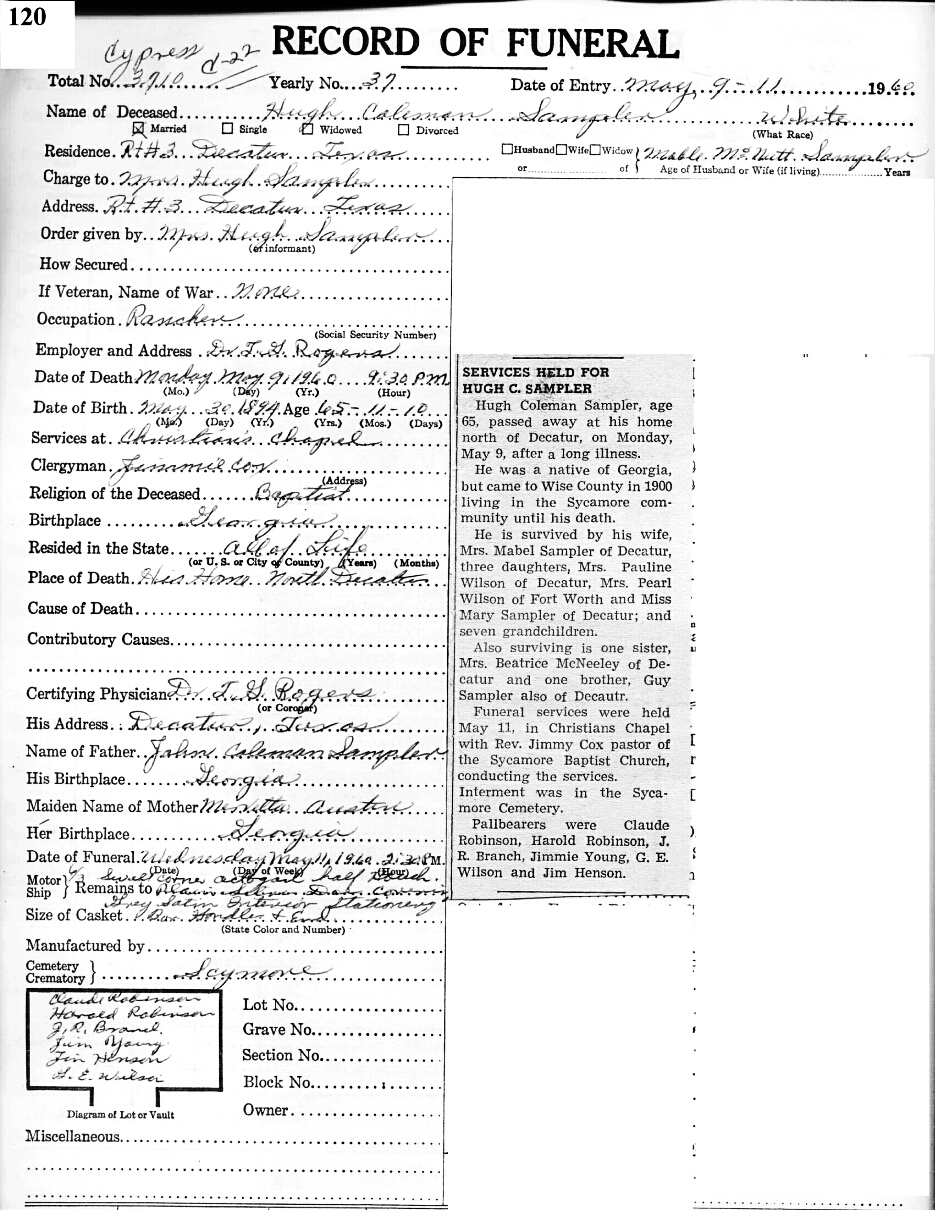 120
Cypress d-22
RECORD OF FUNERAL
Total No. 3710 Yearly No. 37 Date of Entry May, 9-11 1960
Name of Deceased Hugh Coleman Sampler White
Married Single Widowed Divorced (What Race)
Residence. Rt #3 Decatur Texas Husband Wife Widow Mable McNutt Sampler
or of Age of Husband or Wife (if living) Years
Charge to. Mrs. Hugh Sampler
Address. Rt. #3 Decatur Texas
Order given by Mrs. Hugh Sampler
(or informant)
How Secured
If Veteran, Name of War None
Occupation. Rancher
(Social Security Number)
Employer and Address Dr. T. G. Rogers
Date of Death Monday May 9, 1960 9:30 P.M.
(Mo.) (Day) (Yr.) (Hour)
Date of Birth. May 30, 1894 Age 65-11-10
(Mo.) (Day) (Yr.) (Yrs.) (Mos.) (Days)
Services at. Christian's Chapel
Clergyman. Jimmie Cox
(Address)
Religion of the Deceased Baptist
Birthplace Georgia
Resided in the State All of Life
(or U. S. or City or County) (Years) (Months)
Place of Death. His Home North Decatur
Cause of Death
Contributory Causes
Certifying Physician Dr. T. G. Rogers
(or Coroner)
His Address Decatur, Texas
Name of Father. John Coleman Sampler
His Birthplace Georgia
Maiden Name of Mother Austin
Her Birthplace Georgia
Date of Funeral. Wednesday May 11, 1960 2:30 P.M.
(Date) (Day of Week) (Hour)
6/3 corner half
Motor
Ship Remains to
Grey Satin Interior Stationery
Size of Casket. Bar Handles & End
(State Color and Number)
Manufactured by
Cemetery
Crematory Scymore
Claude Robinson
Harold Robinson
J. R. Branch
Jim Young
Jim Henson
G. E. Wilson
Diagram of Lot or Vault
Lot No.
Grave No.
Section No.
Block No.
Owner
Miscellaneous
SERVICES HELD FOR
HUGH C. SAMPLER
Hugh Coleman Sampler, age
65, passed away at his home
north of Decatur, on Monday,
May 9, after a long illness.
He was a native of Georgia,
but came to Wise County in 1900
living in the Sycamore com-
munity until his death.
He is survived by his wife,
Mrs. Mabel Sampler of Decatur,
three daughters, Mrs. Pauline
Wilson of Decatur, Mrs. Pearl
Wilson of Fort Worth and Miss
Mary Sampler of Decatur; and
seven grandchildren.
Also surviving is one sister,
Mrs. Beatrice McNeeley of De-
catur and one brother, Guy
Sampler also of Decautr.
Funeral services were held
May 11, in Christians Chapel
with Rev. Jimmy Cox pastor of
the Sycamore Baptist Church,
conducting the services.
Interment was in the Syca-
more Cemetery.
Pallbearers were Claude
Robinson, Harold Robinson, J.
R. Branch, Jimmie Young, G. E.
Wilson and Jim Henson.